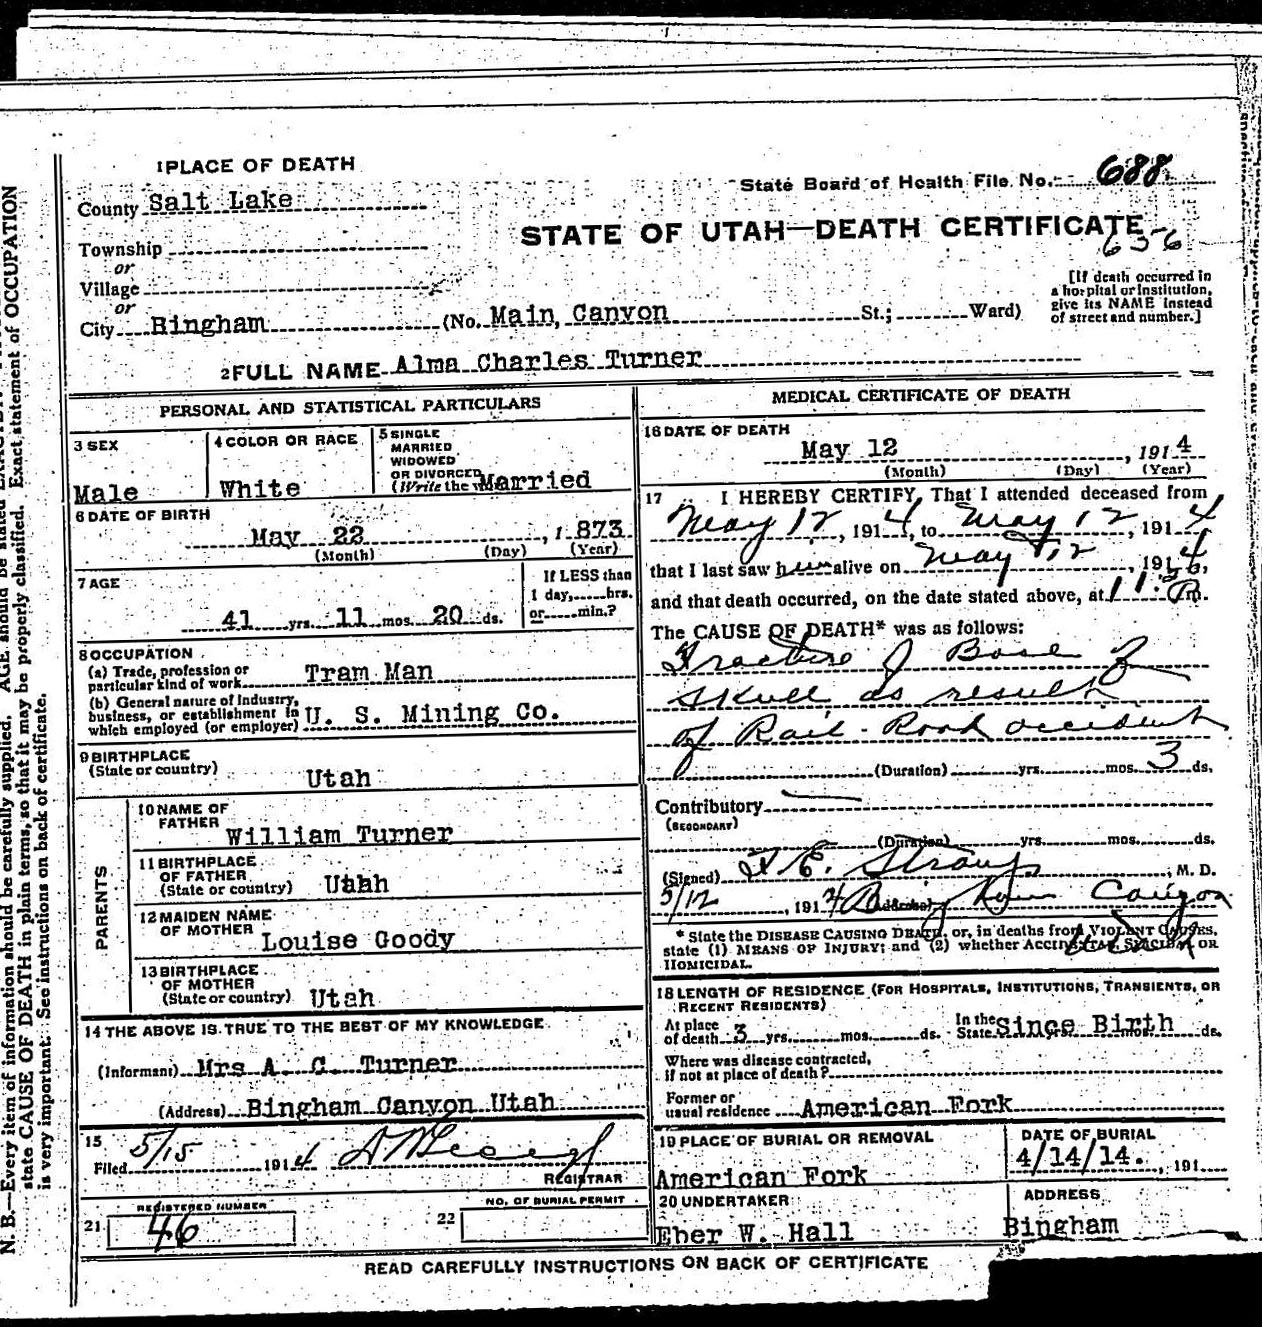 1 PLACE OF DEATH
State Board of Health File No. 688
County Salt Lake
STATE OF UTAH—DEATH CERTIFICATE
656
Township
or
Village
or
City Bingham (No. Main Canyon St.; Ward)
[If death occurred in
a hospital or institution,
give its NAME instead
of street and number.]
2 FULL NAME Alma Charles Turner
PERSONAL AND STATISTICAL PARTICULARS
3 SEX
Male
4 COLOR OR RACE
White
5 SINGLE
MARRIED
WIDOWED
OR DIVORCED
(Write the Married
6 DATE OF BIRTH
May 22, 1 873
(Month) (Day) (Year)
7 AGE
41 yrs. 11 mos. 20 ds.
If LESS than
1 day, hrs.
or min.?
8 OCCUPATION
(a) Trade, profession or
particular kind of work Tram Man
(b) General nature of industry,
business, or establishment in
which employed (or employer) U. S. Mining Co.
9 BIRTHPLACE
(State or country)
Utah
PARENTS
10 NAME OF
FATHER
William Turner
11 BIRTHPLACE
OF FATHER
(State or country) Uahh
12 MAIDEN NAME
OF MOTHER
Louise Goody
13 BIRTHPLACE
OF MOTHER
(State or country) Utah
14 THE ABOVE IS TRUE TO THE BEST OF MY KNOWLEDGE
(Informant) Mrs A. C. Turner
(Address) Bingham Canyon Utah
15
Filed 5/15 1914
REGISTRAR
21 REGISTERED NUMBER
46
22 NO. OF BURIAL PERMIT
MEDICAL CERTIFICATE OF DEATH
16 DATE OF DEATH
May 12, 1914
(Month) (Day) (Year)
17 I HEREBY CERTIFY, That I attended deceased from
May 12, 1914, to May 12, 1914
that I last saw him alive on May 12, 1914,
and that death occurred, on the date stated above, at 11
The CAUSE OF DEATH* was as follows:
Fracture of Base of
skull as result
of Rail-Road accident
(Duration) yrs. mos. 3 ds.
Contributory
(SECONDARY)
(Duration) yrs. mos. ds.
(Signed) F. E. Straup, M. D.
5/12, 1914 (Address) Bingham Canyon
Utah
* State the DISEASE CAUSING DEATH, or, in deaths from VIOLENT CAUSES,
state (1) MEANS OF INJURY; and (2) whether ACCIDENTAL, SUICIDAL OR
HOMICIDAL.
18 LENGTH OF RESIDENCE (FOR HOSPITALS, INSTITUTIONS, TRANSIENTS, OR
RECENT RESIDENTS)
At place
of death 3 yrs. mos. ds. In the State Since Birth ds.
Where was disease contracted,
if not at place of death?
Former or
usual residence American Fork
19 PLACE OF BURIAL OR REMOVAL
American Fork
DATE OF BURIAL
4/14/14. , 191
20 UNDERTAKER
Eber W. Hall
ADDRESS
Bingham
READ CAREFULLY INSTRUCTIONS ON BACK OF CERTIFICATE
N. B.—Every item of information should be carefully supplied. AGE should be stated
state CAUSE OF DEATH in plain terms, so that it may be properly classified. Exact statement of OCCUPATION
is very important. See instructions on back of certificate.